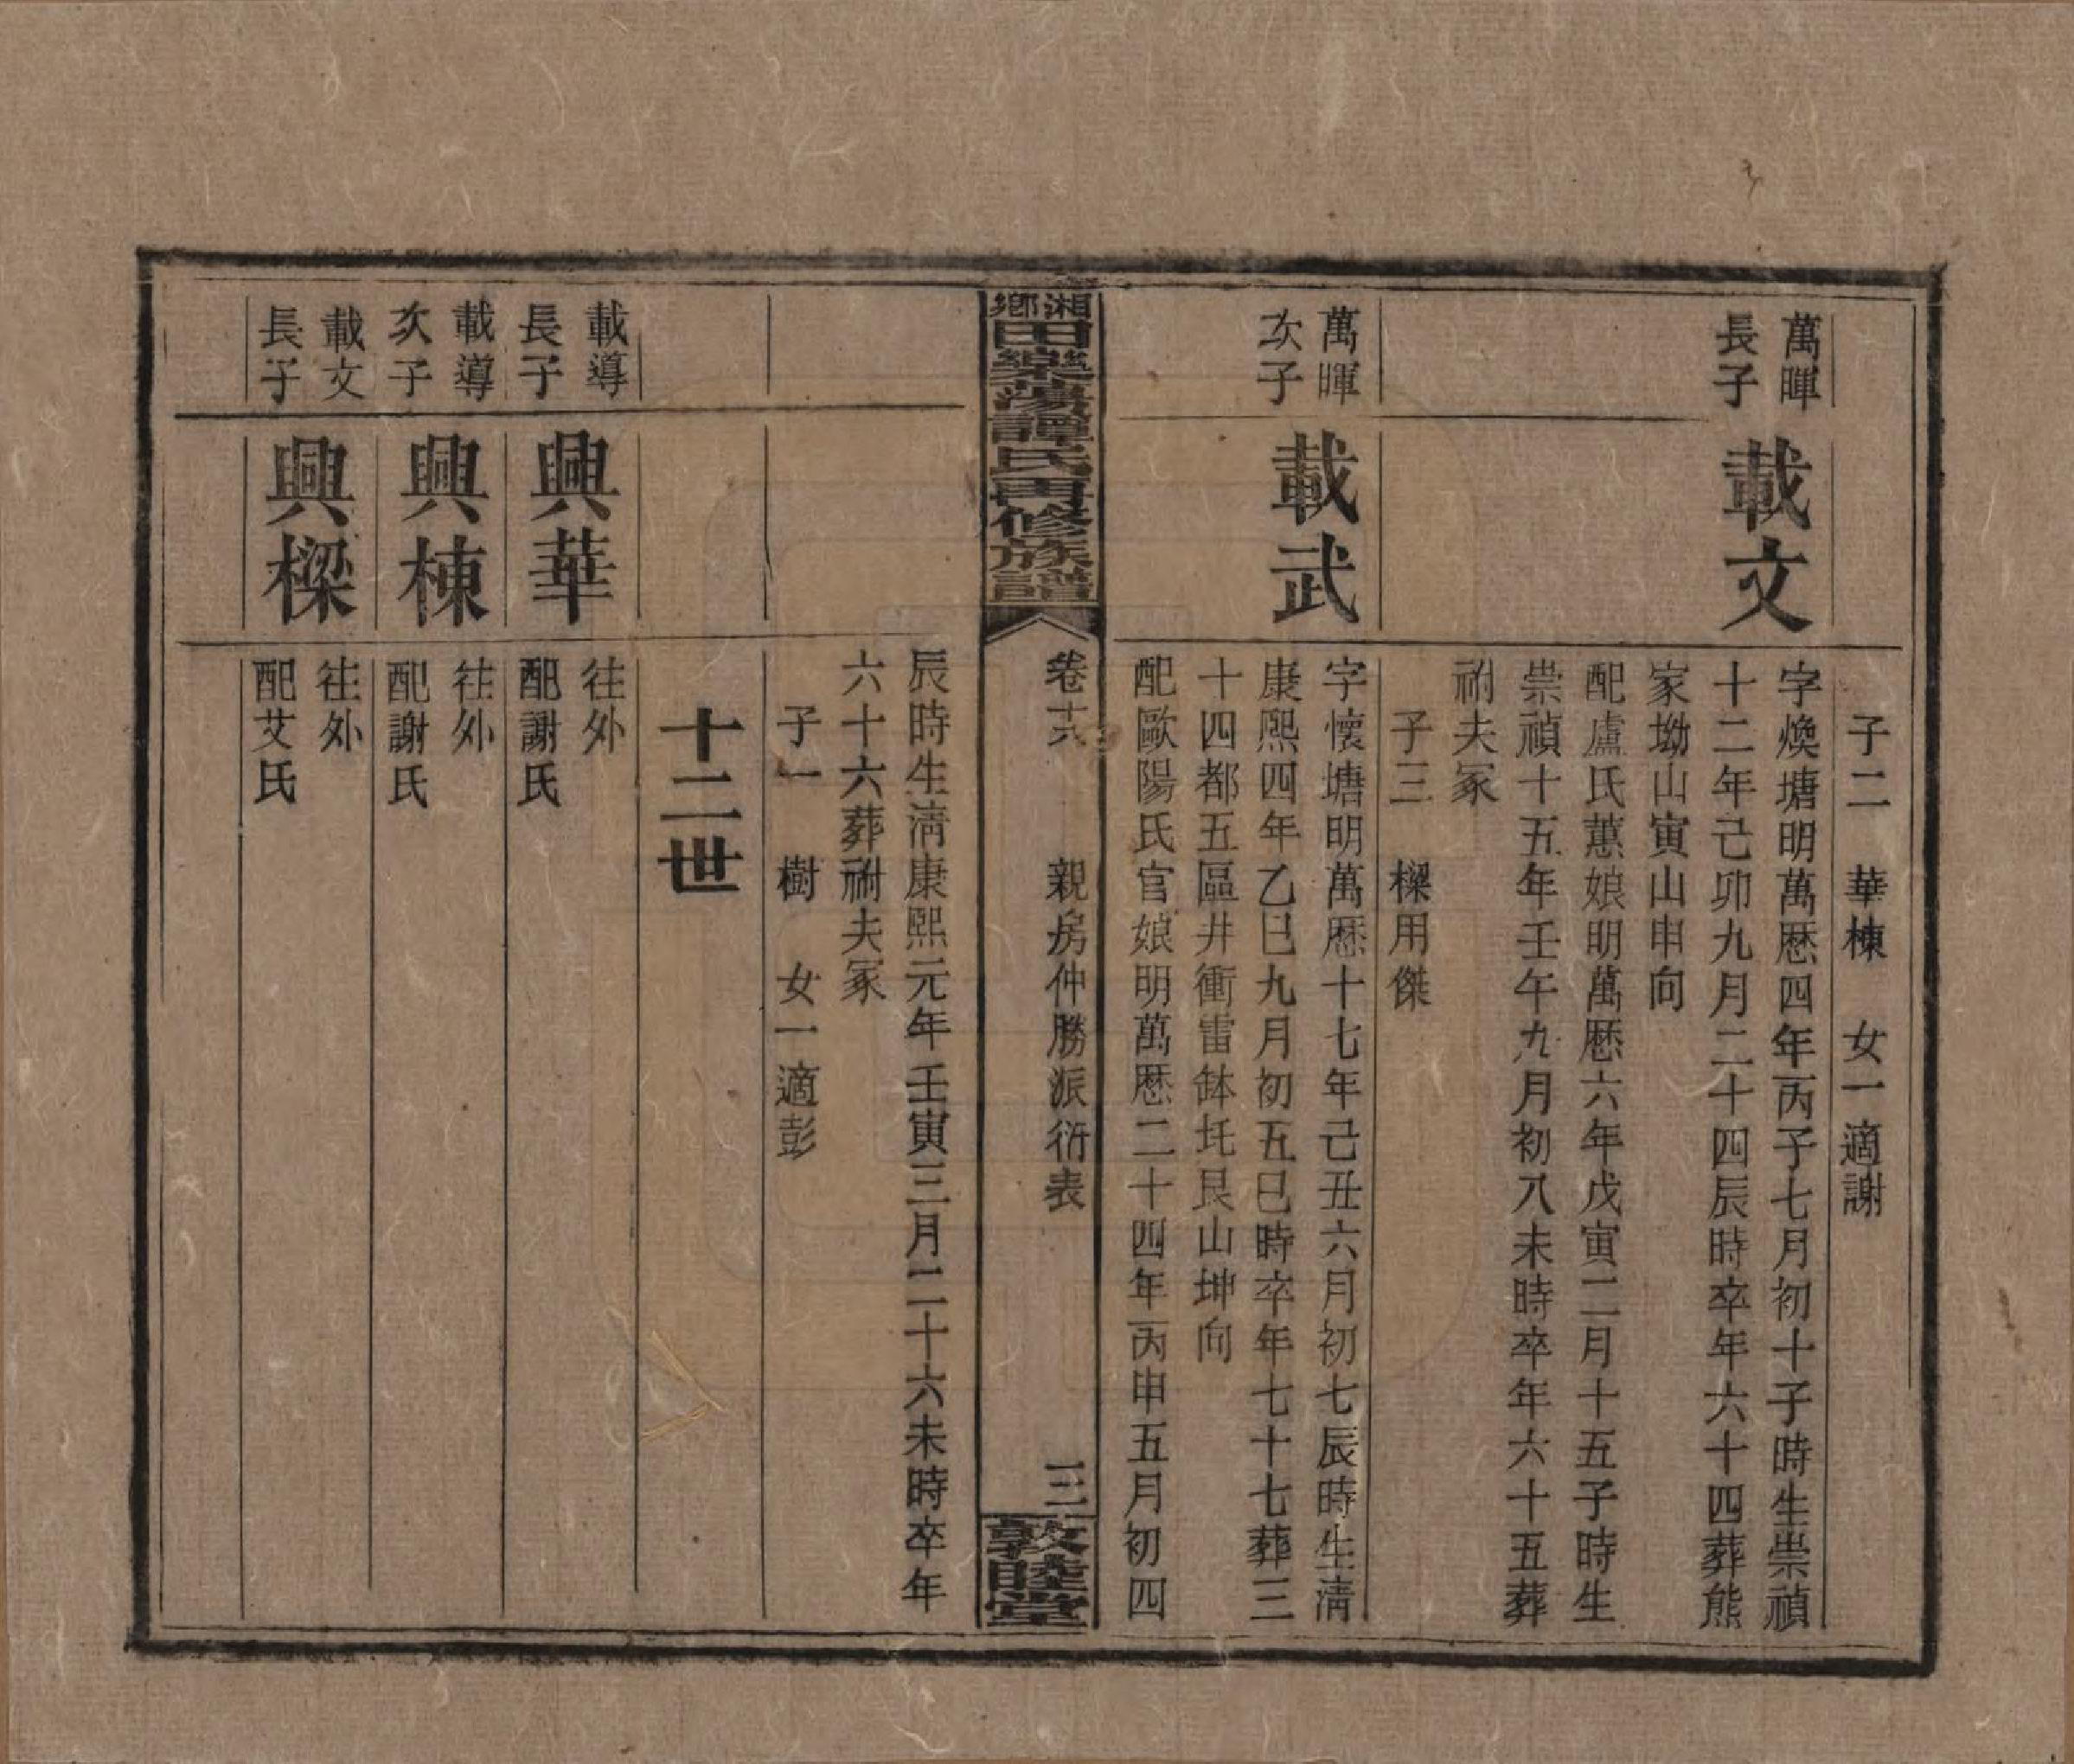 子二　華棟　女一適謝
萬暉
長子
載文
字煥塘明萬歷四年丙子七月初十子時生崇禎
十二年己卯九月二十四辰時卒年六十四葬熊
家坳山寅山申向
配盧氏蕙娘明萬歷六年戊寅二月十五子時生
崇禎十五年壬午九月初八未時卒年六十五葬
祔夫冢
子三　樑用傑
萬暉
次子
載武
字懷塘明萬歷十七年己丑六月初七辰時生清
康熙四年乙巳九月初五巳時卒年七十七葬三
十四都五區井衝雷缽圫艮山坤向
配歐陽氏官娘明萬歷二十四年丙申五月初四
湘鄉田樂蕩譚氏四修族譜
卷十六　親房仲勝派衍表　三
敦睦堂
辰時生清康熙元年壬寅三月二十六未時卒年
六十六葬祔夫冢
子一　樹　女一適彭
十二世
載導
長子
興華
往外
配謝氏
載導
次子
興棟
往外
配謝氏
載文
長子
興樑
往外
配艾氏